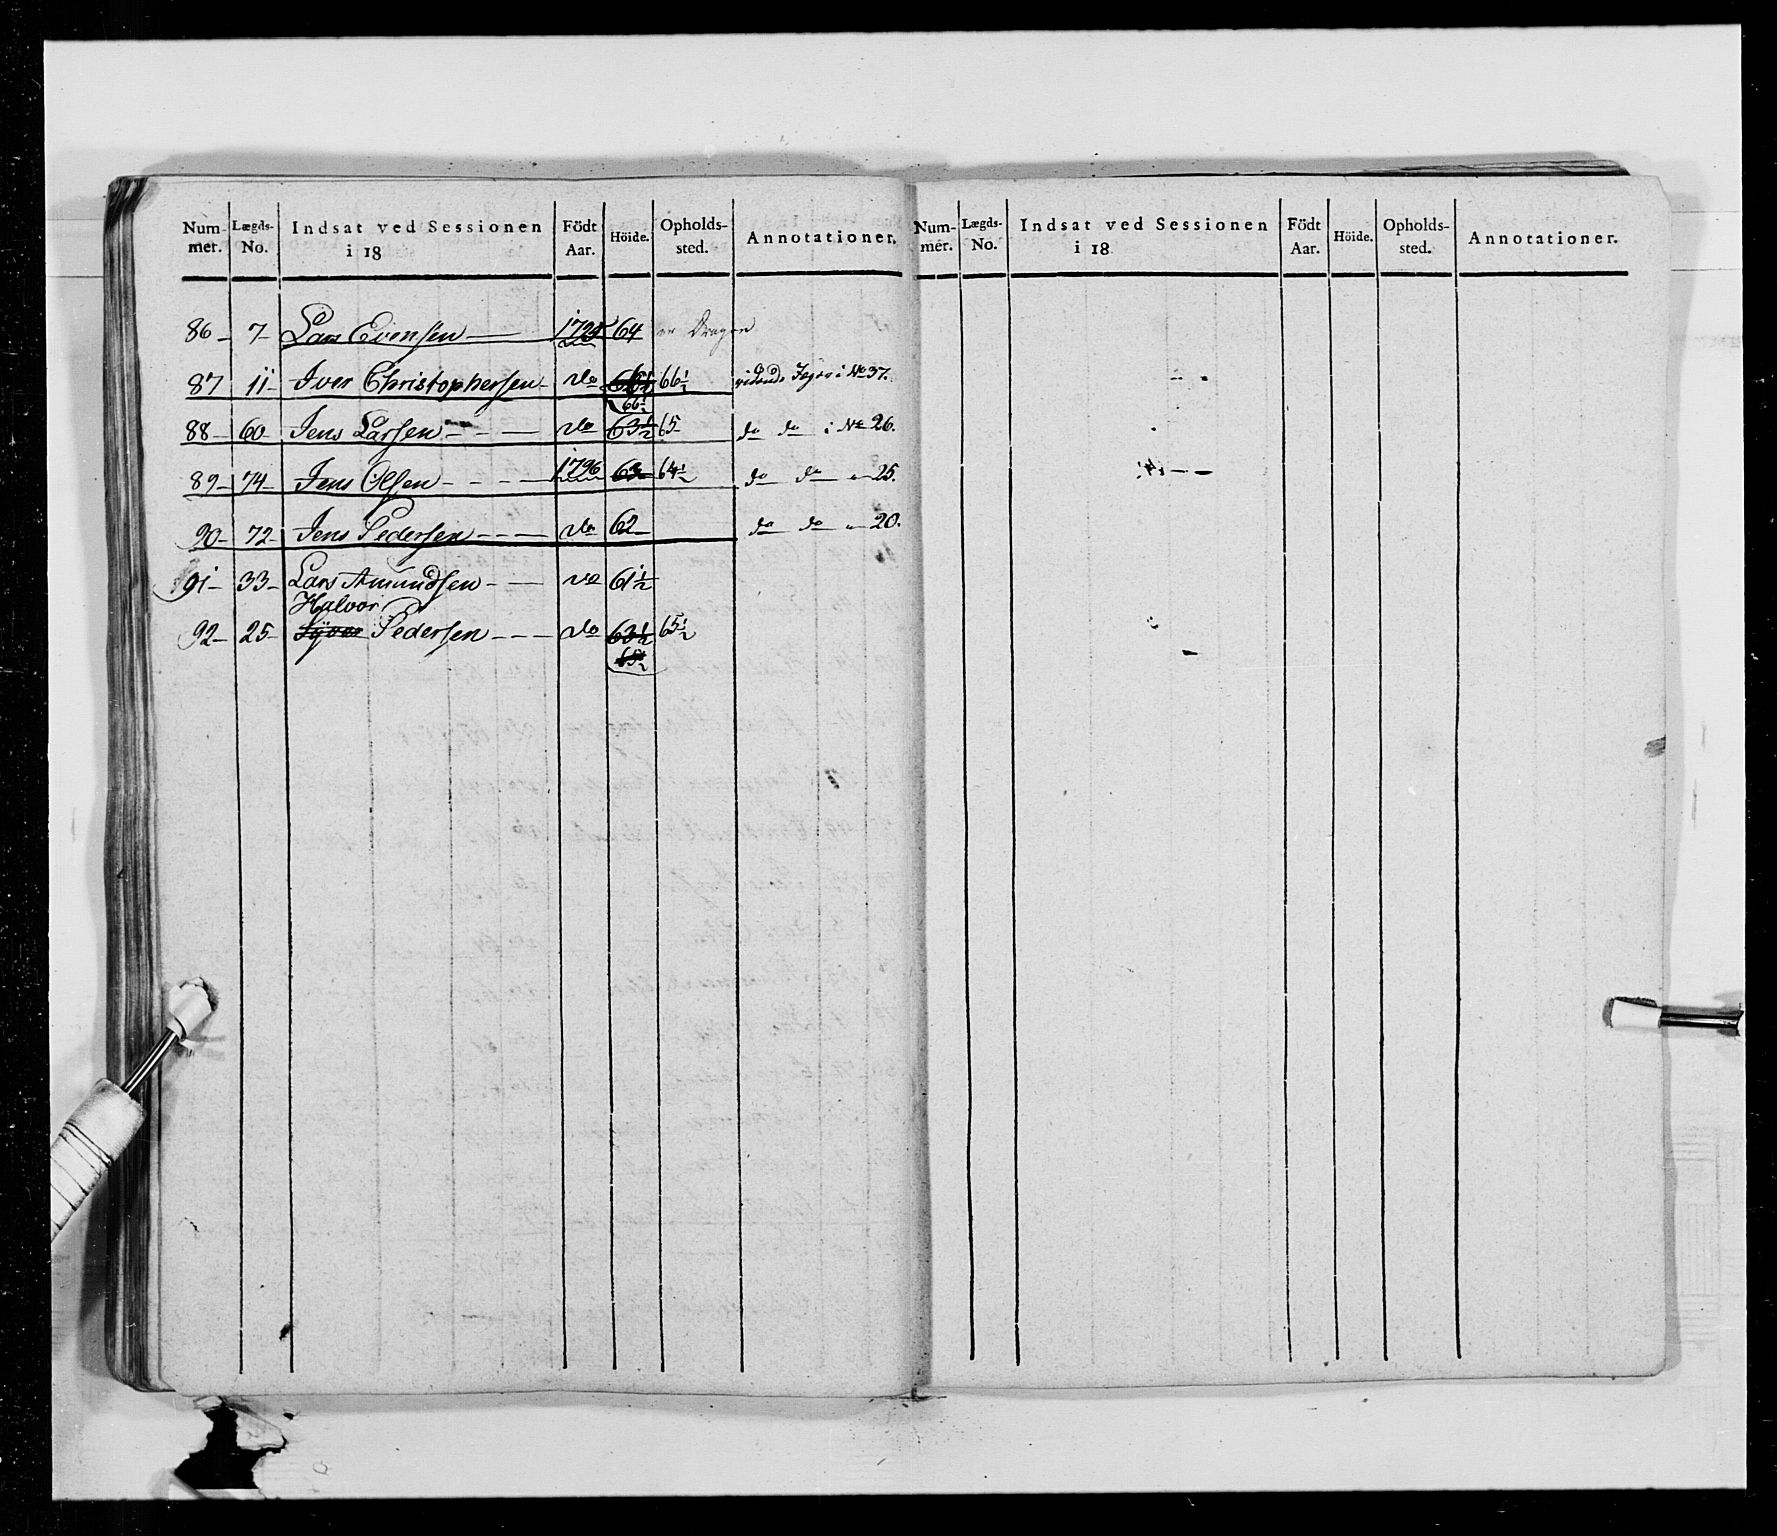 Num- Lægds- Indsat ved Sessionen Födt Höide. Opholds- Annotationer.
mer. No. i 18 Aar. sted.
86 – 7 – Lars Evensen – 64 er Dragon
87 11 – Iver Christophersen – do 66½ ridende Jæger i No 37.
66½
88 – 60 – Jens Larsen – – – do 63½ 65 do do i No 26.
89 – 74 – Jens Olsen – – – – 1796 63 – 64½ do do – 25.
90 – 72 – Jens Pedersen – – – do 62 – do do – 20.
91 – 33 – Lars Amundsen – – do 61½
Halvor
92 – 25 – Syver Pedersen – – – do 63½ 65½
65½
Num- Lægds- Indsat ved Sessionen Födt Höide. Opholds- Annotationer.
mer. No. i 18 Aar. sted.